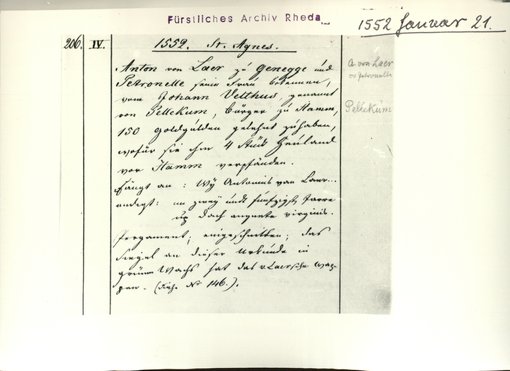 Fürstliches Archiv Rheda
1552 Januar 21.
206. IV. 1552. St. Agnes.
Anton von Laer zu Genegge und
Petronelle seine Frau bekennen,
vom Johann Velthus, genannt
von Pelkum, Bürger zu Hamm,
150 Goldgulden geliehen zu haben,
wofür sie ihm 4 Stück Heuland
vor Hamm verpfänden.
Fängt an: Wÿ Antonius van Laer...
endigt: im zweÿ und funfzigsten Jaere
up dach agnete virginis.
Pergament; eingeschnitten; das
Siegel an dieser Urkunde in
grünem Wachs hat das v. Laersche Wap-
pen. (Kps. No 146.).
A. von Laer
oo Petronella
Pelkum